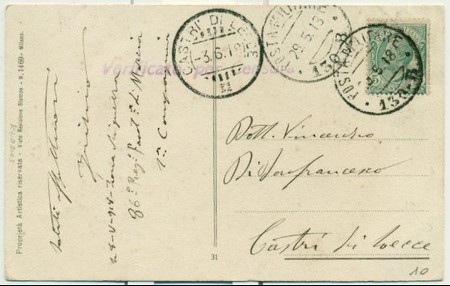 Proprietà Artistica riservata - Visto Revisione Stampa - N. 1469 - Milano.
Saluti affettuosi
28-V-918 - Zona di guerra
86° Regg. Fant
1ª Compagnia
CASTRI' DI LECCE
-3.6.18
Verificato per censura
POSTA MILITARE
29.5.18
130-B
POSTA MILITARE
.5.18
130-B
Dott. Vincenzo
Di Gianfrancesco
Castri di Lecce
31
10